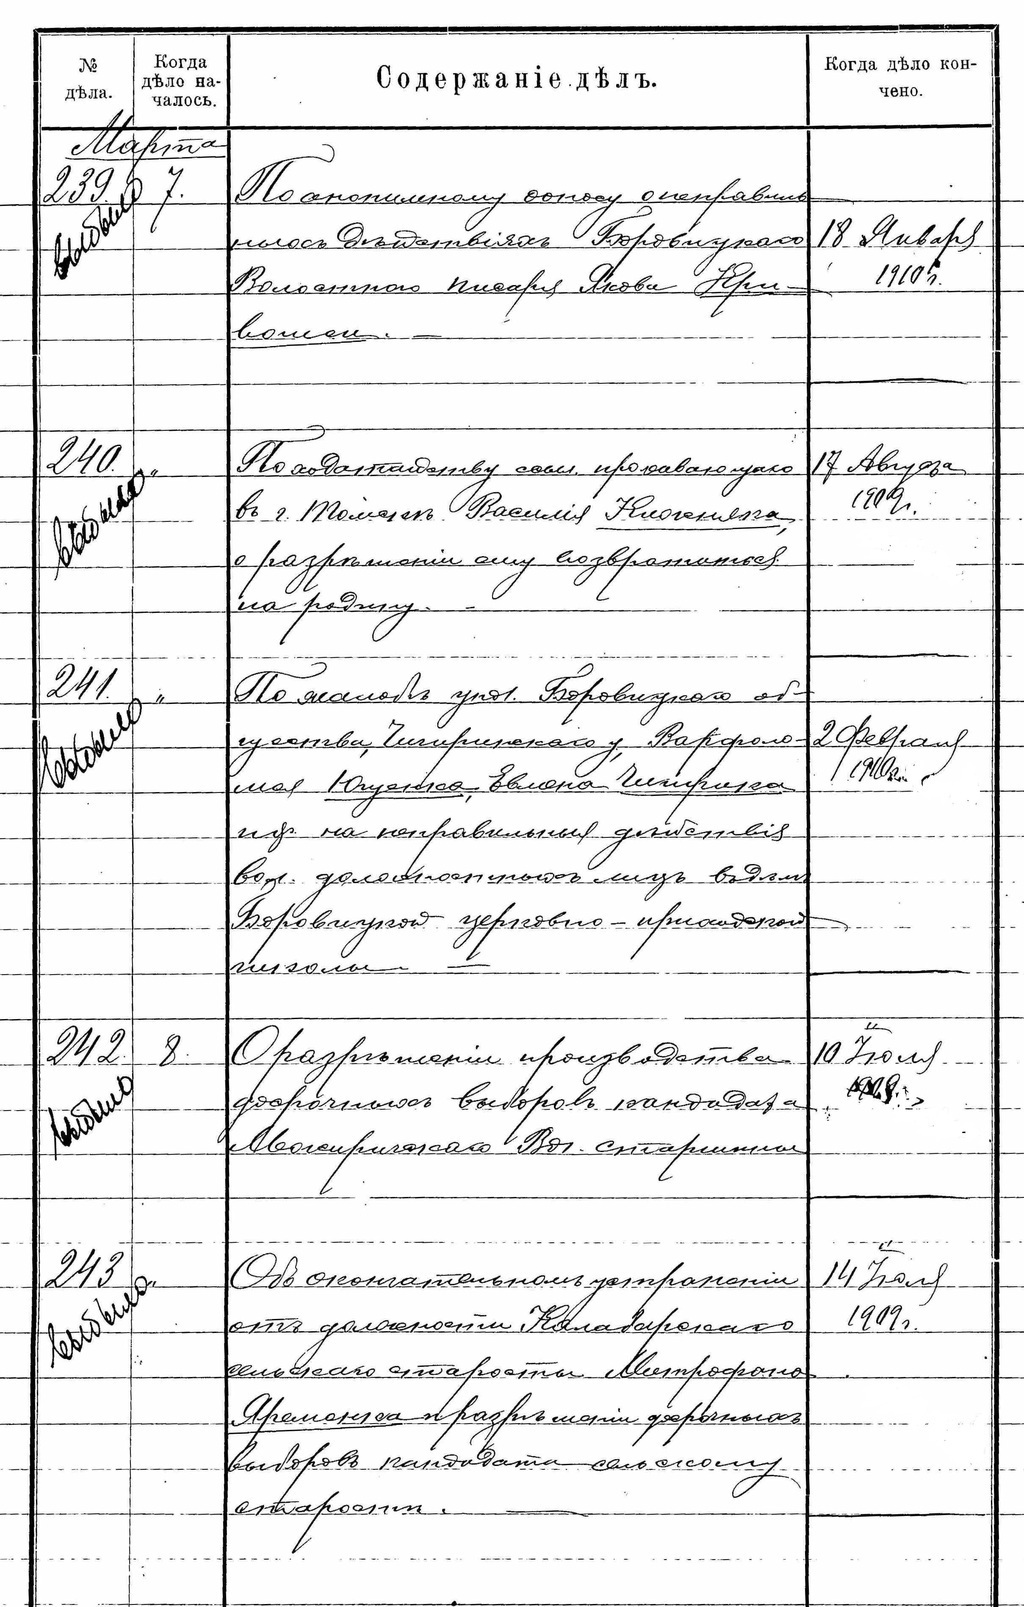 № дѣла.
Когда дѣло началось.
Содержаніе дѣлъ.
Когда дѣло кончено.
Марта
239. 7. По анонимному доносу о неправиль
ныхъ дѣйствіяхъ Боровицкаго 18 Января
Волостного писаря Якова Кри- 1910 г.
вошеи. —
выбыло
240. „ По ходатайству ссыл. проживающаго 17 Августа
въ г. Томскѣ Василія 1909 г.
о разрѣшеніи ему возвратиться
на родину. -
выбыло
241. „ По жалобѣ упол. Боровицкаго об-
щества, Чигиринскаго у, Варфоло- 2 Февраля
мея Ющенка, 1910 г.
и др. на неправильныя дѣйствія
вол. должностныхъ лицъ
Боровицкой церковно-приходской
школы —
выбыло
242. 8. О разрѣшеніи производства 10 Іюля
досрочныхъ выборовъ кандидата 1909 г.
Мокиричскаго Вол. старшины
выбыло
243 „ Объ окончательномъ устраненіи 14 Іюля
отъ должности Калабарскаго 1909 г.
сельскаго старосты Митрофана
Яременка и разрѣшеніи досрочныхъ
выборовъ кандидата сельскому
старостѣ. —
выбыло